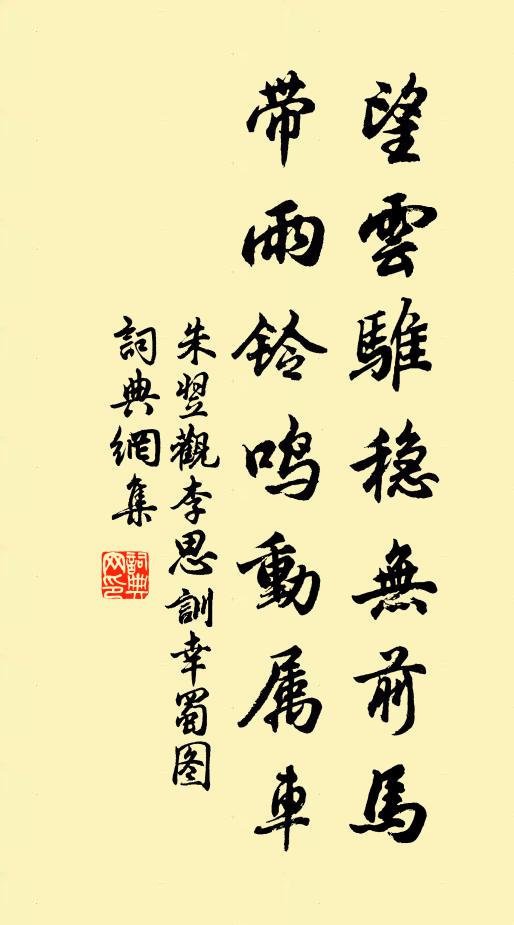 望雲騅稳無前馬
带雨鈴鸣動属車
朱翌觀李思訓幸蜀图
詞典網集
詞典網印